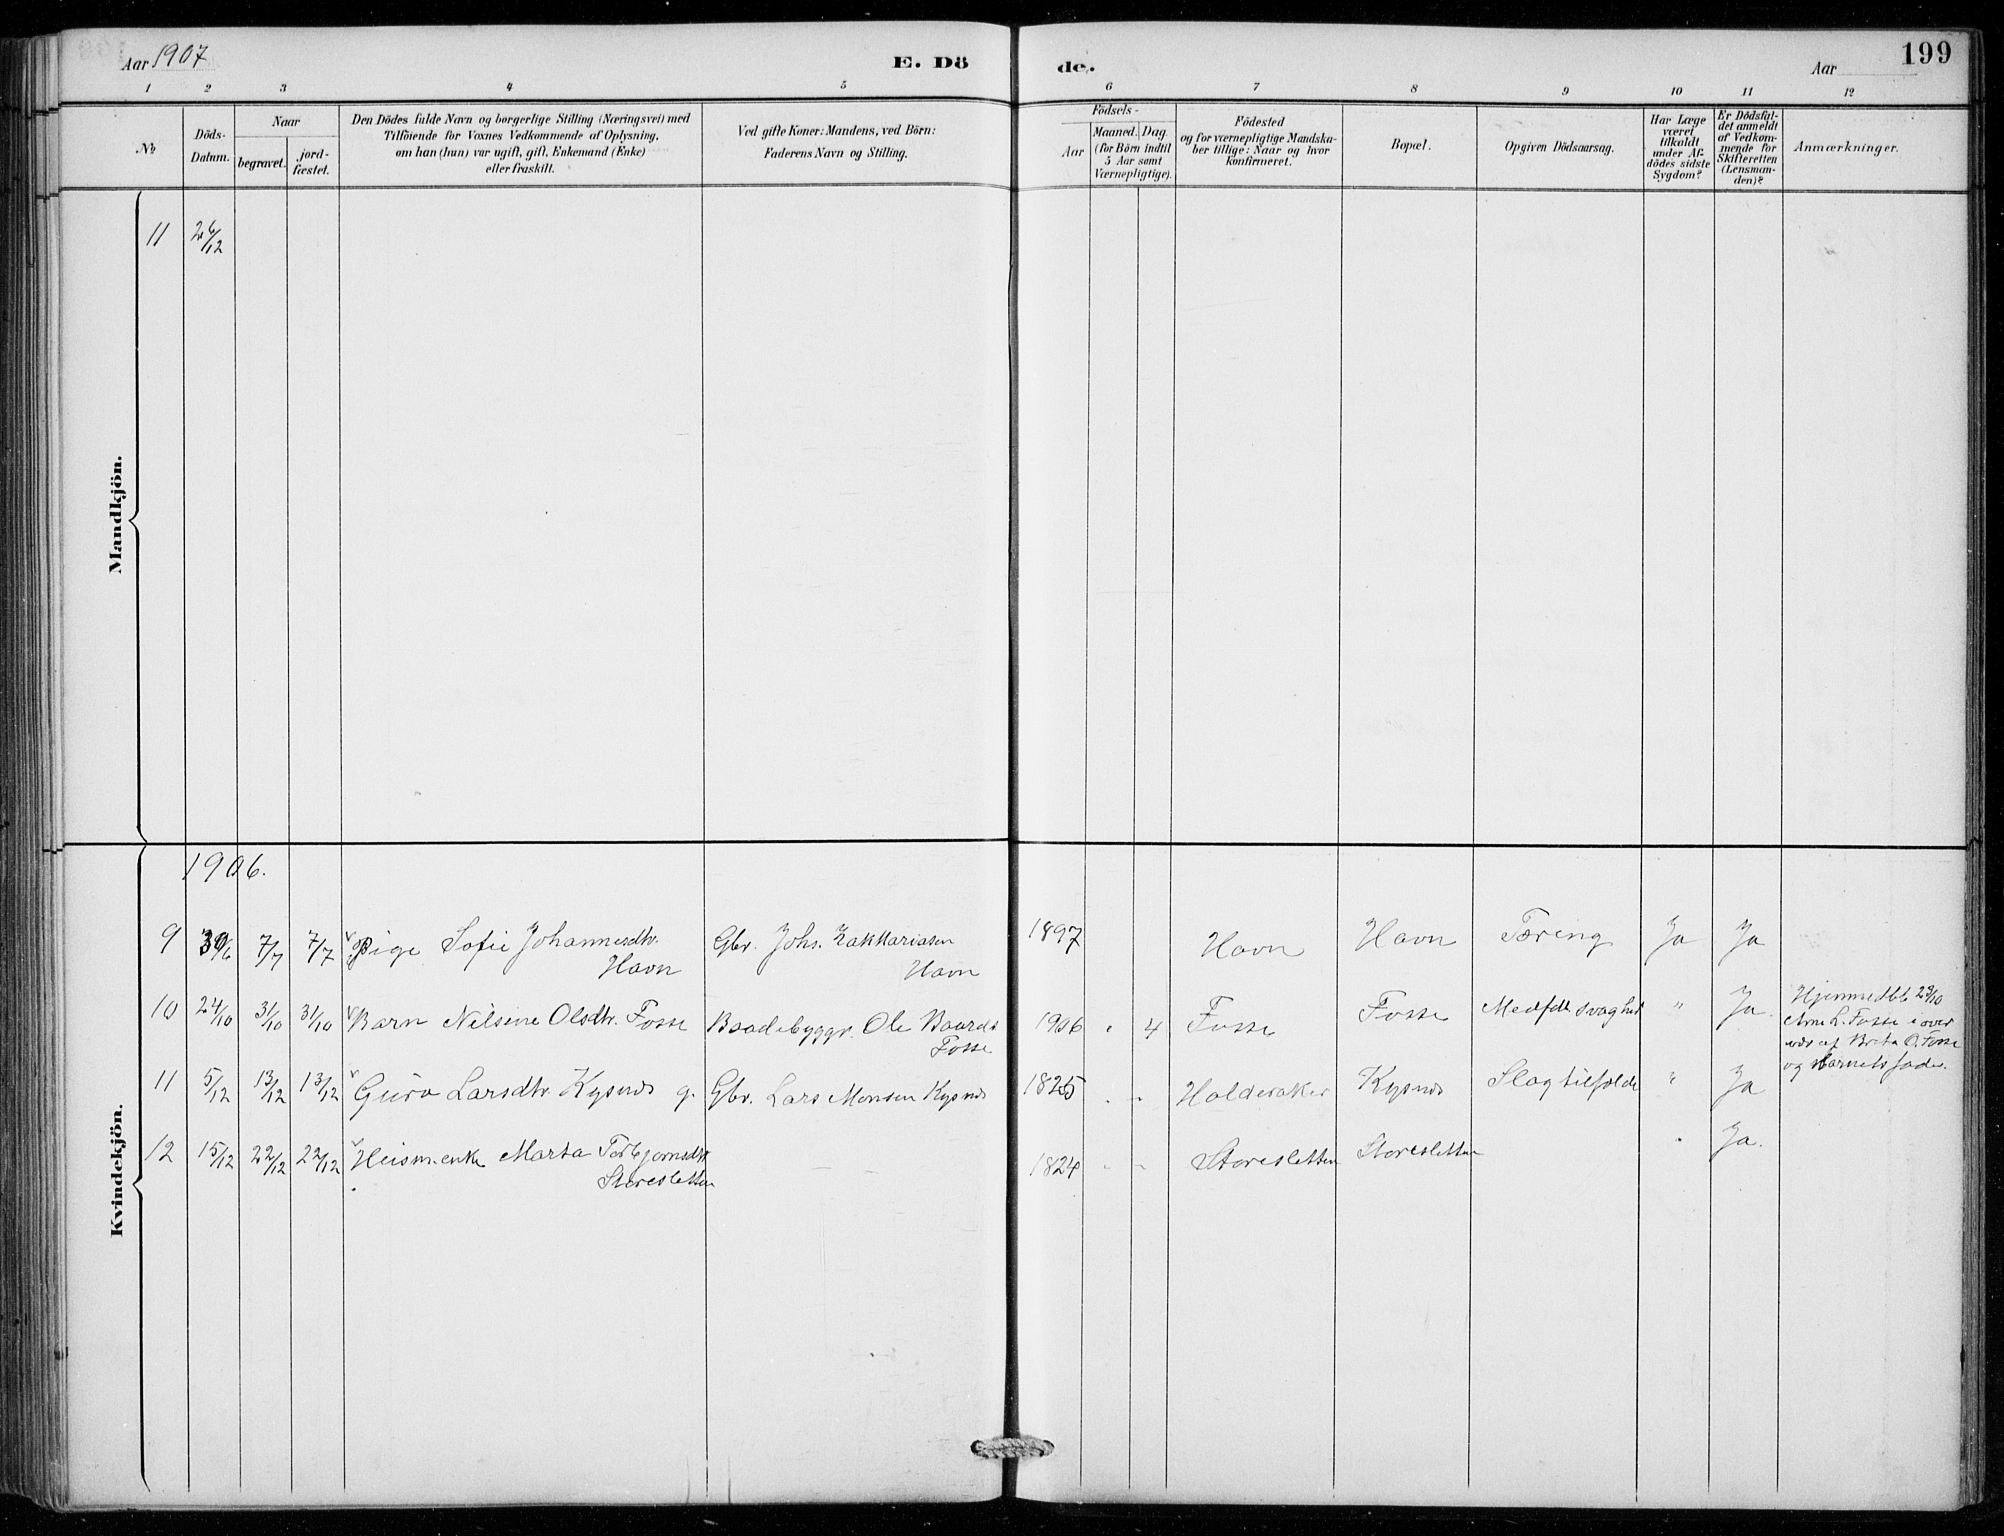 Aar 1907
E. Dö
de.
Aar
199
1 2 3 4 5 6 7 8 9 10 11 12
No
Döds-
Datum.
Naar
begravet.
jord-
fæstet.
Den Dödes fulde Navn og borgerlige Stilling (Næringsvei) med
Tilföiende for Voxnes Vedkommende af Oplysning,
om han (hun) var ugift, gift, Enkemand (Enke)
eller fraskilt.
Ved gifte Koner: Mandens, ved Börn:
Faderens Navn og Stilling.
Födsels-
Aar
Maaned. Dag.
(for Börn indtil
5 Aar samt
Værnepligtige).
Födested
og for værnepligtige Mandska-
ber tillige: Naar og hvor
konfirmeret.
Bopæl.
Opgiven Dödsaarsag.
Har Læge
været
tilkaldt
under Af-
dödes sidste
Sygdom?
Er Dödsfal-
det anmeldt
af Vedkom-
mende for
Skifteretten
(Lensman-
den)?
Anmærkninger.
Mandkjön.
11 26/12
Kvindekjön.
1906.
9 30/6 7/7 7/7 Pige Sofie Johannesdtr. Gbr. Johs. Zakkariasen 1897 Havn Havn Tæring Ja Ja
Havn Havn
10 24/10 31/10 31/10 Barn Nilsine Olsdtr. Fosse Baadebyggr. Ole Baards 1906 " 4 Fosse Fosse Medfdt svaghed " Ja.
Fosse
Hjemmedbt 23/10
Arne L. Fosse i over
vær af Brita O. Fosse
og barnets fader.
11 5/12 13/12 13/12 Guro Larsdtr. Kysnes g. Gbr. Lars Monsen Kysnes 1825 " " Holderaker Kysnes Slagtilfælde " Ja
12 15/12 22/12 22/12 Marta Torbjørnsdtr. 1824 " " Storesletten Storesletten " Ja.
Storesletten